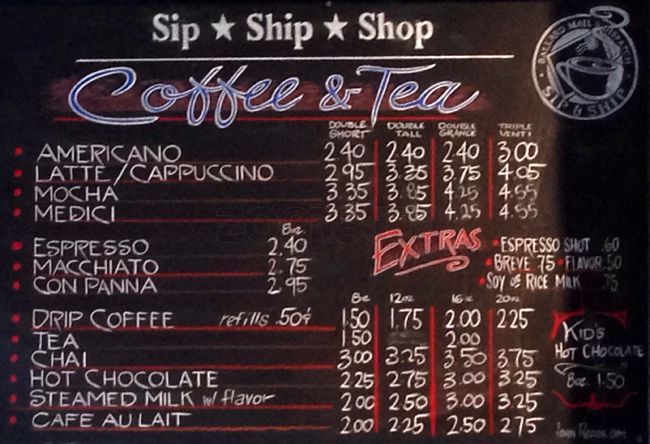 Sip ★ Ship ★ Shop
BALLARD MAIL & DISPATCH
SIP & SHIP
Coffee & Tea
DOUBLE SHORT DOUBLE TALL DOUBLE GRANDE TRIPLE VENTI
AMERICANO 2.40 2.40 2.40 3.00
LATTE/CAPPUCCINO 2.95 3.35 3.75 4.05
MOCHA 3.35 3.85 4.25 4.55
MEDICI 3.35 3.85 4.25 4.55
8oz.
ESPRESSO 2.40
MACCHIATO 2.75
CON PANNA 2.95
EXTRAS
ESPRESSO SHOT .60
BREVE 75 • FLAVOR .50
SOY OR RICE MILK .75
8oz 12oz 16oz 20oz
DRIP COFFEE refills .50¢ 1.50 1.75 2.00 2.25
TEA 1.50 2.00
CHAI 3.00 3.25 3.50 3.75
HOT CHOCOLATE 2.25 2.75 3.00 3.25
STEAMED MILK w/ flavor 2.00 2.50 3.00 3.25
CAFE AU LAIT 2.00 2.25 2.50 2.75
KID'S
HOT CHOCOLATE
8oz. 1.50